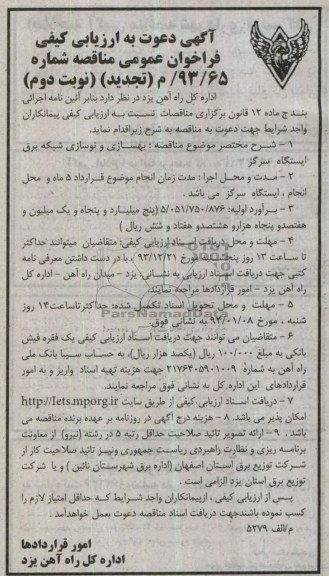 آگهی دعوت به ارزیابی کیفی
فراخوان عمومی مناقصه شماره
۹۳/۶۵/ م (تجدید) (نوبت دوم)
اداره کل راه آهن یزد در نظر دارد بنابر آئین نامه اجرائی
بند ج ماده ۱۲ قانون برگزاری مناقصات نسبت به ارزیابی کیفی پیمانکاران
واجد شرایط جهت دعوت به مناقصه به شرح زیر اقدام نماید.
۱ - شرح مختصر موضوع مناقصه : بهسازی و نوسازی شبکه برق
ایستگاه سرگز
۲ - مدت و محل اجرا : مدت زمان انجام موضوع قرارداد ۵ ماه و محل
انجام ، ایستگاه سرگز می باشد .
۳ - برآورد اولیه: ۵/۰۵۱/۷۵۰/۸۷۶ (پنج میلیارد و پنجاه و یک میلیون و
هفتصدو پنجاه هزارو هشتصدو هفتاد و شش ریال )
۴ - مهلت و محل دریافت اسناد ارزیابی کیفی: متقاضیان میتوانند حداکثر
تا ساعت ۱۳ روز پنجشنبه مورخ ۹۳/۱۲/۲۱ ، با در دست داشتن معرفی نامه
کتبی جهت دریافت اسناد ارزیابی به نشانی: یزد - میدان راه آهن - اداره کل
راه آهن یزد - امور قراردادها مراجعه نمایند.
۵ - مهلت و محل تحویل اسناد تکمیل شده: حداکثر تا ساعت ۱۴ روز
شنبه ، مورخ ۹۴/۰۱/۰۸ به نشانی فوق:
۶ - متقاضیان می توانند جهت دریافت اسناد ارزیابی کیفی یک فقره فیش
بانکی به مبلغ ۱۰۰/۰۰۰ ریال (یکصد هزار ریال)، به حساب سیبا بانک ملی
راه آهن به شماره ۲۱۷۶۴۰۵۹۰۱۰۰۹ جهت هزینه تهیه اسناد واریز و به امور
قراردادهای این اداره کل به نشانی فوق مراجعه نمایند.
۷ - دریافت اسناد ارزیابی کیفی از طریق سایت http://Iets.mporg.ir
امکان پذیر می باشد. ۸ - هزینه درج آگهی در روزنامه بر عهده برنده مناقصه می
باشد . ۹ - ارائه تصویر تائید صلاحیت حداقل رتبه ۵ در رشته (نیرو) از معاونت
برنامه ریزی و نظارت راهبردی ریاست جمهوری ونیز تائید صلاحیت کار از
شرکت توزیع برق استان اصفهان (اداره برق شهرستان نائین ) و یا شرکت
توزیع برق استان یزد الزامی است .
پس از ارزیابی کیفی ، ازپیمانکاران واجد شرایط که حداقل امتیاز لازم را
کسب نموده باشندجهت دریافت اسناد مناقصه دعوت بعمل خواهدآمد .
م/الف ۵۲۷۹
امور قراردادها
اداره کل راه آهن یزد